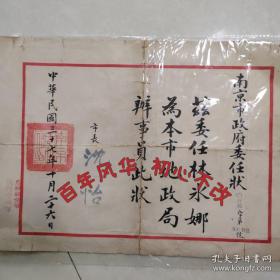 南京市政府委任狀
茲委任林永娜
為本市地政局
辦事員此狀
市長 沈怡
中華民國三十七年十月二十六日
百年风华 初心不改